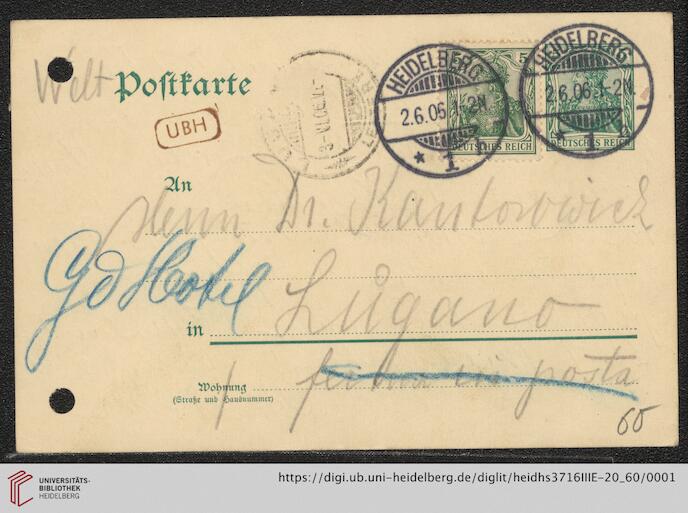 Welt
Postkarte
UBH
HEIDELBERG
2.6.06
2N
* 1
5
DEUTSCHES REICH
HEIDELBERG
2.6.06.1-2N
* 1
DEUTSCHES REICH
An
Herrn Dr. Kantorowicz
Gd Hotel
in Lugano
Wohnung
(Straße und Hausnummer)
ferma in posta
60
UNIVERSITÄTS-
BIBLIOTHEK
HEIDELBERG
https://digi.ub.uni-heidelberg.de/diglit/heidhs3716IIIE-20_60/0001